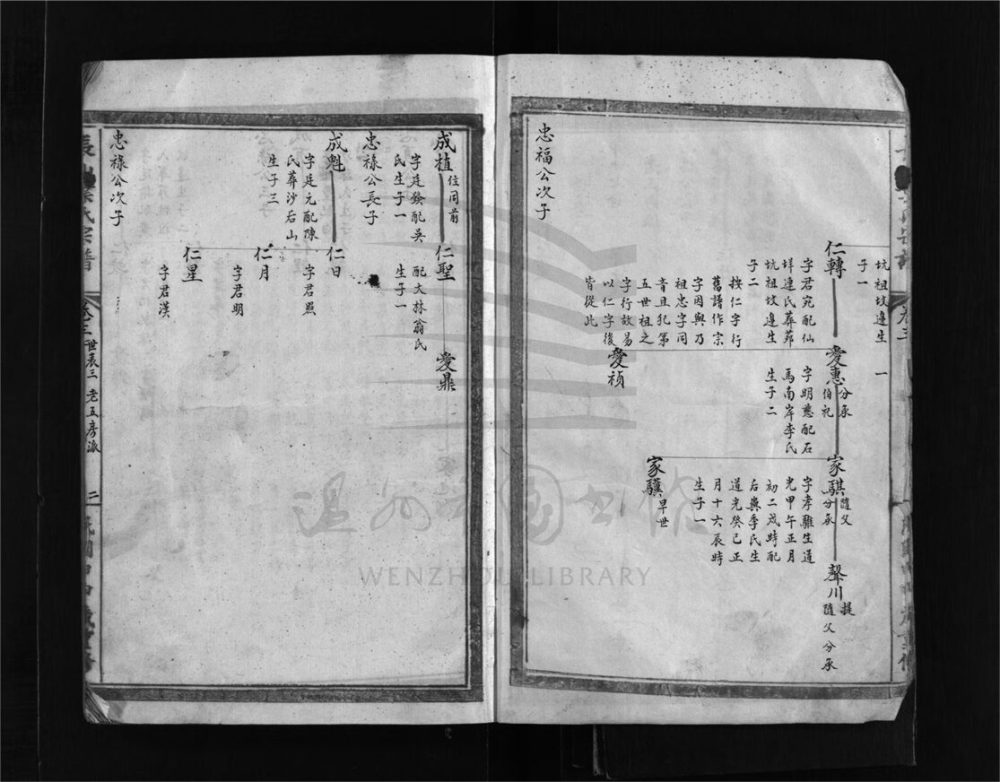 坑祖坟邊生
子一
仁轉
字君宛配仙
垟連氏葬葬
坑祖坟邊生
子二
按仁字行
舊譜作宗
字因與乃
祖忠字同
音且犯第
五世祖之
字行故易
以仁字後
皆從此
愛惠
分承
伯礼
字明慈配石
馬南岸李氏
生子二
愛禎
家騏
隨父
分承
字孝驥生道
光甲午正月
初二戌時配
后輿季氏生
道光癸巳正
月十六辰時
生子一
家驥
早世
聲川
隨父分承
忠福公次子
成植
住同前
字廷發配吳
氏生子一
仁聖
配大林翁氏
生子一
愛鼎
忠祿公長子
成魁
字廷元配陳
氏葬沙右山
生子三
仁日
字君熙
仁月
字君明
仁星
字君漢
忠祿公次子
氏宗譜
卷三
世表三
老五房派
二
溫州市圖書館
WENZHOU LIBRARY